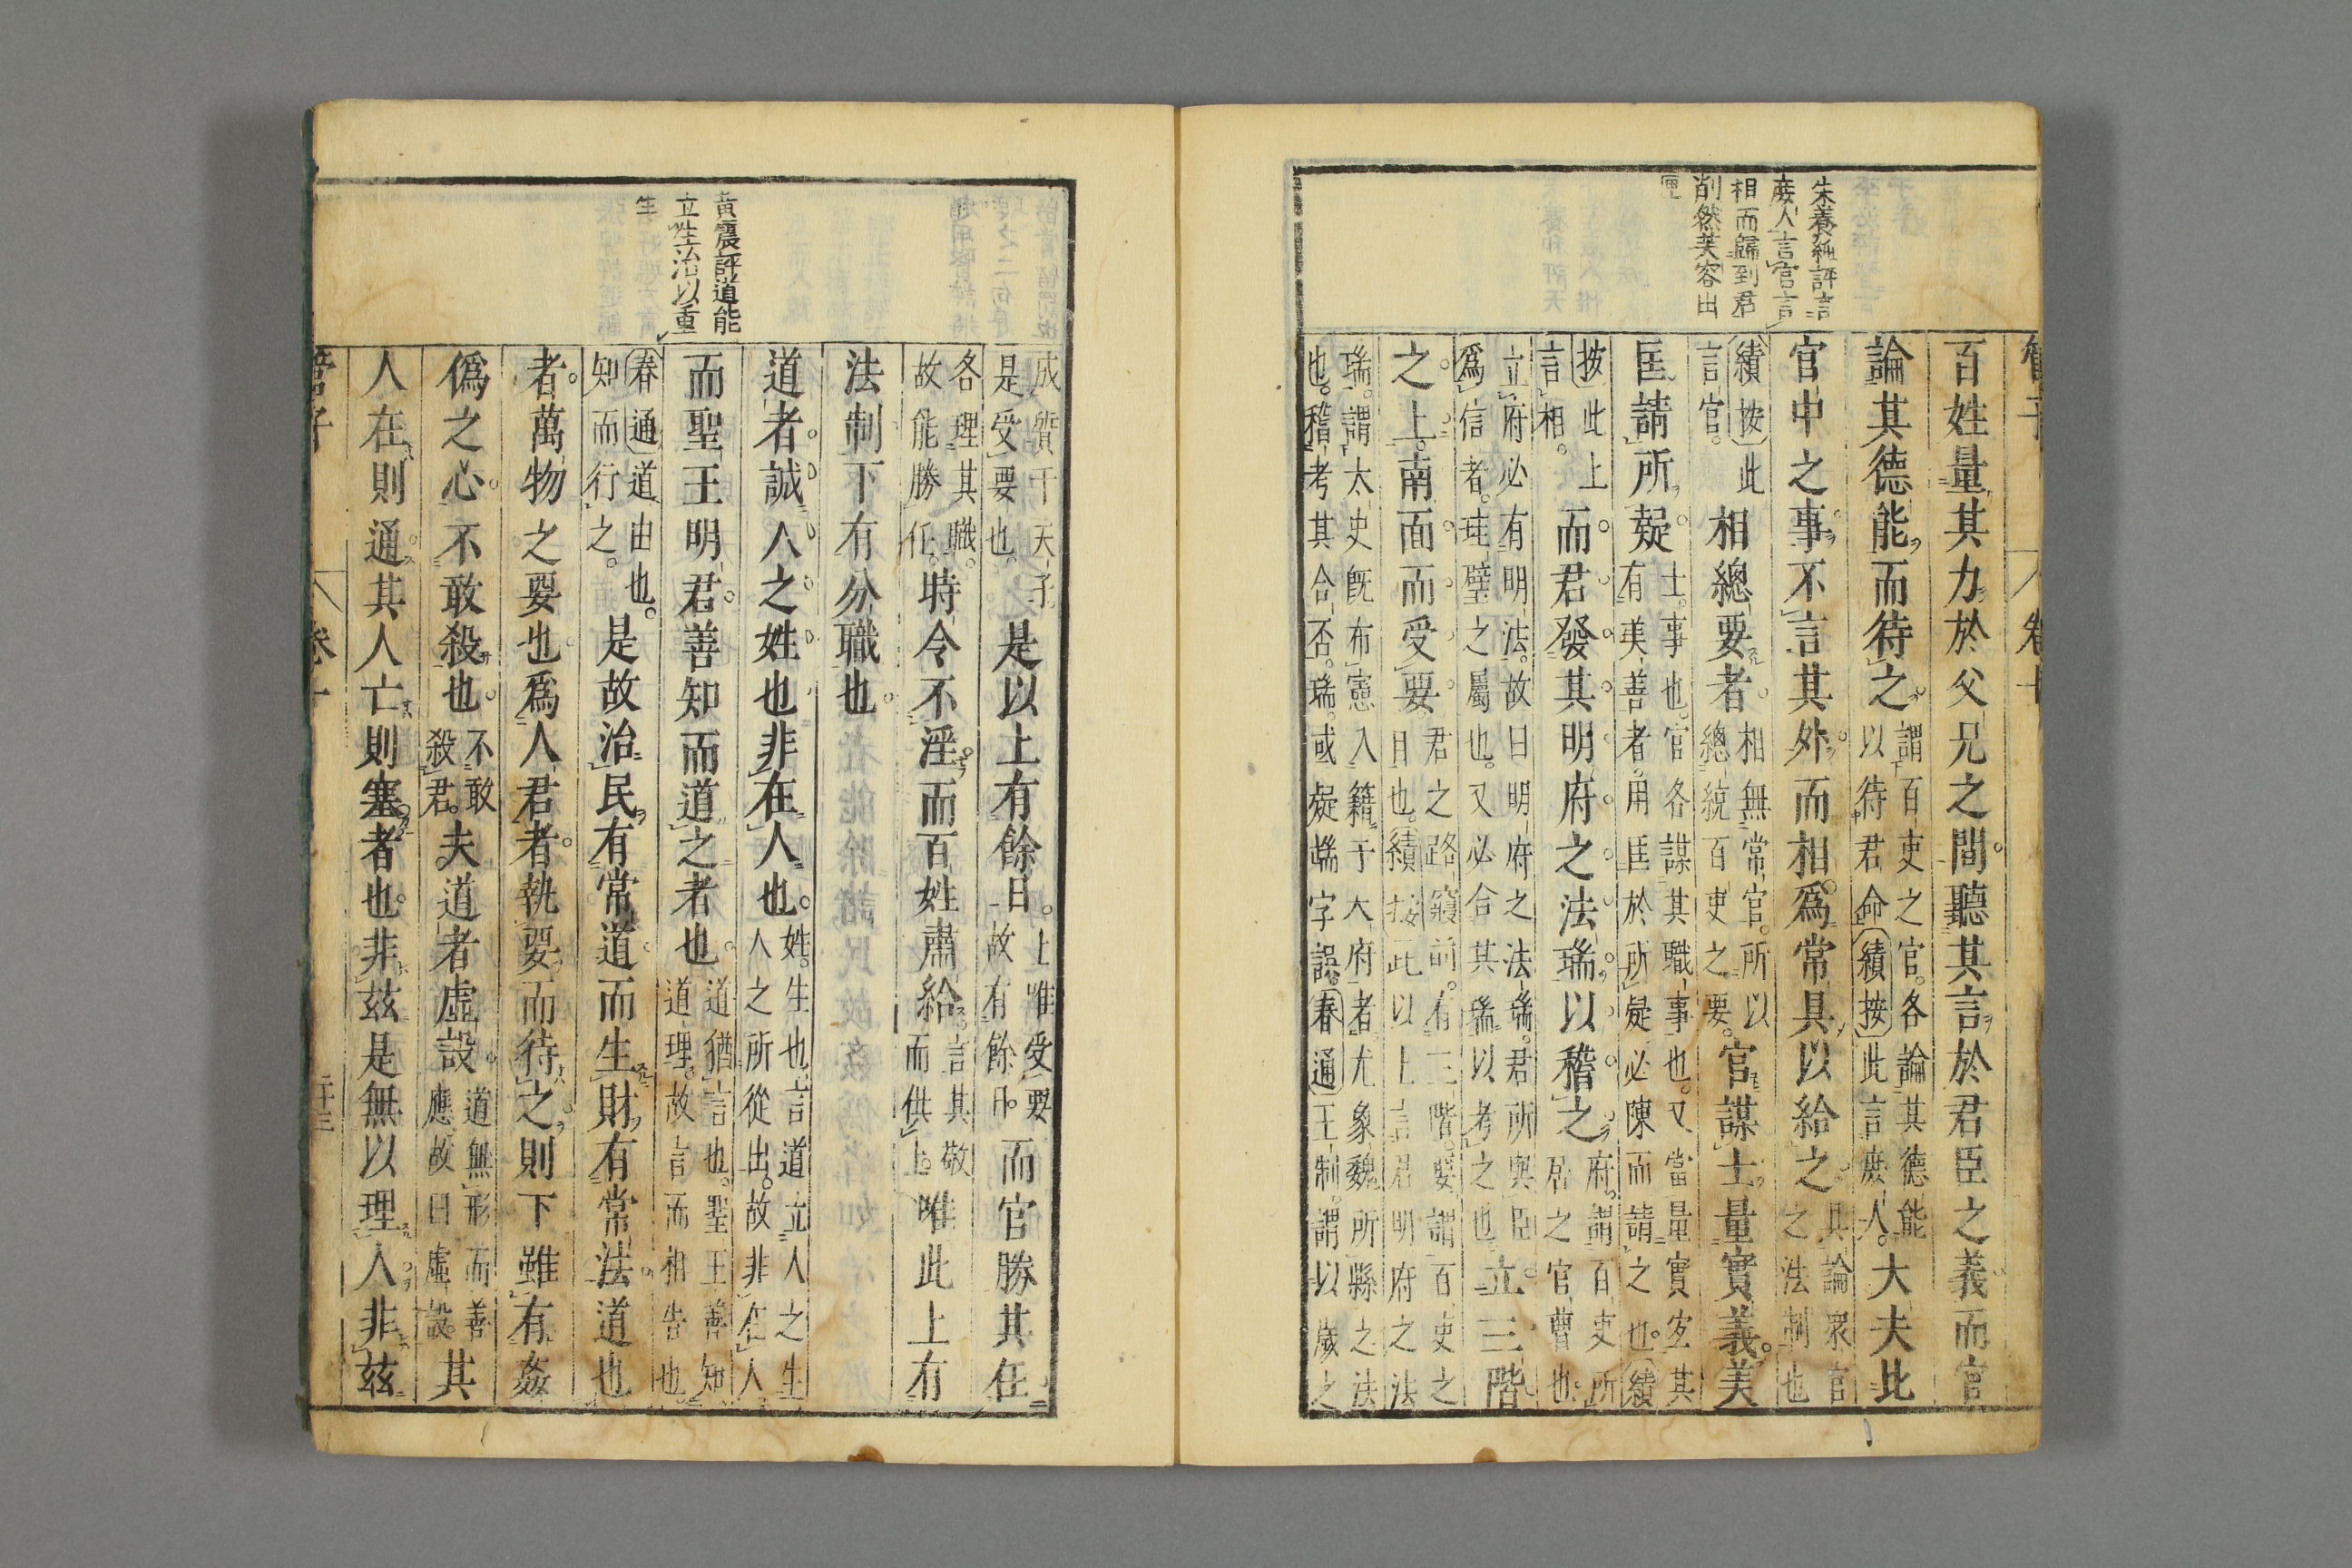 朱養純評言
庶人言官言
相而歸到君
削然芙容出
匣
百姓量其力於父兄之間聽其言於君臣之義而官
論其德能而待之謂百吏之官各論其德能以待君命續按此言庶人大夫比
官中之事不言其外而相爲常具以給之具論眾官之法制也
續按此言官相總要者相無常官所以總統百吏之要官謀士量實義美
匡請所疑士事也官各謀其職事也又當量實宻其有美善者用匡於所疑必陳而請之也續
按此上言相而君發其明府之法瑞以稽之府謂百吏所居之官曹也
立府必有明法故曰明府之法瑞君所與臣爲信者珪璧之屬也又必合其瑞以考之也立三階
之上南面而受要君之路寢前有三階要謂百吏之目也續按此以上言君明府之法
瑞謂太史旣布憲入籍于大府者尤象魏所縣之法也稽考其合否瑞或疑端字誤春通王制謂以歲之
黃震評道能
立姓治以重
生
成質于天子是受要也是以上有餘日上唯受要故有餘日而官勝其任
各理其職故能勝任時令不淫而百姓肅給言其敬而供上唯此上有
法制下有分職也
道者誠人之姓也非在人也姓生也言道立人之生人之所從出故非在人
而聖王明君善知而道之者也道猶言也聖王善知道理故言而相告也
春通道由也知而行之是故治民有常道而生財有常法道也
者萬物之要也爲人君者執要而待之則下雖有姦
僞之心不敢殺也不敢殺君夫道者虛設道無形而善應故曰虛設其
人在則通其人亡則塞者也非茲是無以理人非茲
管子